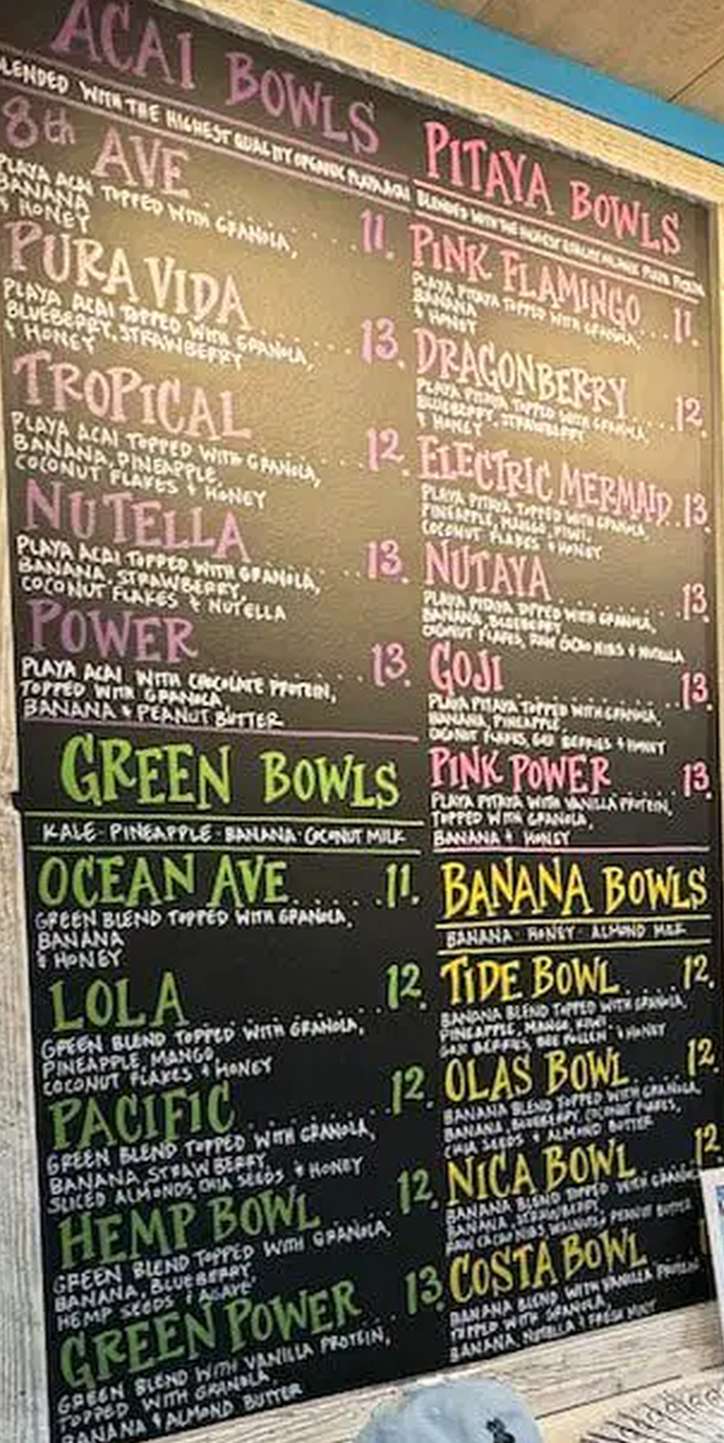 ACAI BOWLS
BLENDED WITH THE HIGHEST QUALITY ORGANIC PLAYA ACAI
8th AVE . . . . . . 11.
PLAYA ACAI TOPPED WITH GRANOLA,
BANANA
& HONEY
PURA VIDA . . . . . . 13.
PLAYA ACAI TOPPED WITH GRANOLA,
BLUEBERRY, STRAWBERRY
& HONEY
TROPICAL . . . . . . 12.
PLAYA ACAI TOPPED WITH GRANOLA,
BANANA, PINEAPPLE,
COCONUT FLAKES & HONEY
NUTELLA . . . . . . 13.
PLAYA ACAI TOPPED WITH GRANOLA,
BANANA, STRAWBERRY,
COCONUT FLAKES & NUTELLA
POWER . . . . . . 13.
PLAYA ACAI WITH CHOCOLATE PROTEIN,
TOPPED WITH GRANOLA,
BANANA & PEANUT BUTTER
GREEN BOWLS
KALE · PINEAPPLE · BANANA · COCONUT MILK
OCEAN AVE . . . . . 11.
GREEN BLEND TOPPED WITH GRANOLA,
BANANA
& HONEY
LOLA . . . . . . 12.
GREEN BLEND TOPPED WITH GRANOLA,
PINEAPPLE, MANGO,
COCONUT FLAKES & HONEY
PACIFIC . . . . . . 12.
GREEN BLEND TOPPED WITH GRANOLA,
BANANA, STRAWBERRY,
SLICED ALMONDS, CHIA SEEDS & HONEY
HEMP BOWL . . . . 12.
GREEN BLEND TOPPED WITH GRANOLA,
BANANA, BLUEBERRY,
HEMP SEEDS & AGAVE
GREEN POWER . . 13.
GREEN BLEND WITH VANILLA PROTEIN,
TOPPED WITH GRANOLA
BANANA & ALMOND BUTTER
PITAYA BOWLS
BLENDED WITH THE HIGHEST QUALITY ORGANIC PLAYA PITAYA
PINK FLAMINGO . . . 11.
PLAYA PITAYA TOPPED WITH GRANOLA,
BANANA
& HONEY
DRAGONBERRY . . . . 12.
PLAYA PITAYA TOPPED WITH GRANOLA,
BLUEBERRY, STRAWBERRY
& HONEY
ELECTRIC MERMAID . 13.
PLAYA PITAYA TOPPED WITH GRANOLA,
PINEAPPLE, MANGO, KIWI,
COCONUT FLAKES & HONEY
NUTAYA . . . . . . 13.
PLAYA PITAYA TOPPED WITH GRANOLA,
BANANA, BLUEBERRY
COCONUT FLAKES, RAW CACAO NIBS & NUTELLA
GOJI . . . . . . 13.
PLAYA PITAYA TOPPED WITH GRANOLA,
BANANA, PINEAPPLE
COCONUT FLAKES, GOJI BERRIES & HONEY
PINK POWER . . . . 13.
PLAYA PITAYA WITH VANILLA PROTEIN,
TOPPED WITH GRANOLA,
BANANA & HONEY
BANANA BOWLS
BANANA · HONEY · ALMOND MILK
TIDE BOWL . . . . 12.
BANANA BLEND TOPPED WITH GRANOLA,
PINEAPPLE, MANGO, KIWI
GOJI BERRIES, BEE POLLEN & HONEY
OLAS BOWL . . . . 12.
BANANA BLEND TOPPED WITH GRANOLA,
BANANA, BLUEBERRY, COCONUT FLAKES,
CHIA SEEDS & ALMOND BUTTER
NICA BOWL . . . . 12.
BANANA BLEND TOPPED WITH GRANOLA
BANANA, STRAWBERRY,
RAW CACAO NIBS, WALNUTS, PEANUT BUTTER
COSTA BOWL
BANANA BLEND WITH VANILLA PROTEIN
TOPPED WITH GRANOLA,
BANANA, NUTELLA & FRESH MINT